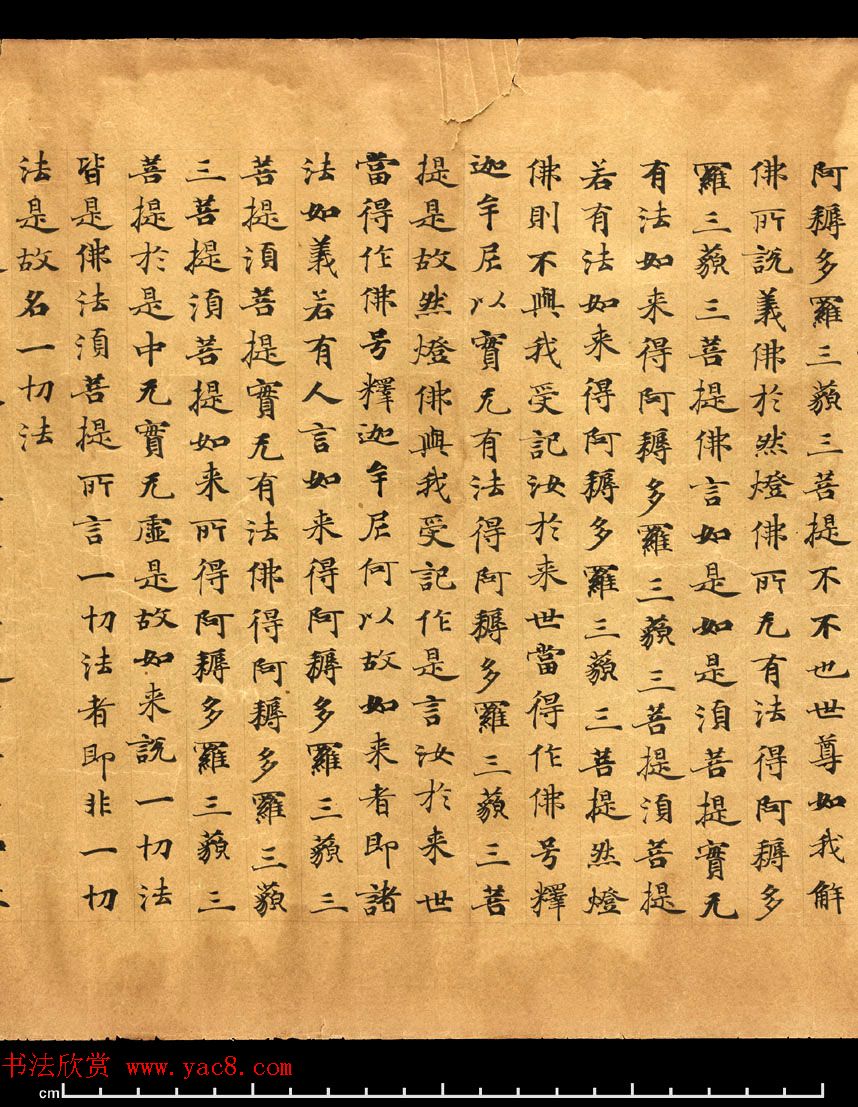 阿耨多羅三藐三菩提不不也世尊如我解
佛所說義佛於然燈佛所无有法得阿耨多
羅三藐三菩提佛言如是如是須菩提實无
有法如来得阿耨多羅三藐三菩提須菩提
若有法如来得阿耨多羅三藐三菩提然燈
佛則不與我受記汝於来世當得作佛号釋
迦牟尼以實无有法得阿耨多羅三藐三菩
提是故然燈佛與我受記作是言汝於来世
當得作佛号釋迦牟尼何以故如来者即諸
法如義若有人言如来得阿耨多羅三藐三
菩提須菩提實无有法佛得阿耨多羅三藐
三菩提須菩提如来所得阿耨多羅三藐三
菩提於是中无實无虛是故如来說一切法
皆是佛法須菩提所言一切法者即非一切
法是故名一切法
书法欣赏 www.yac8.com
cm